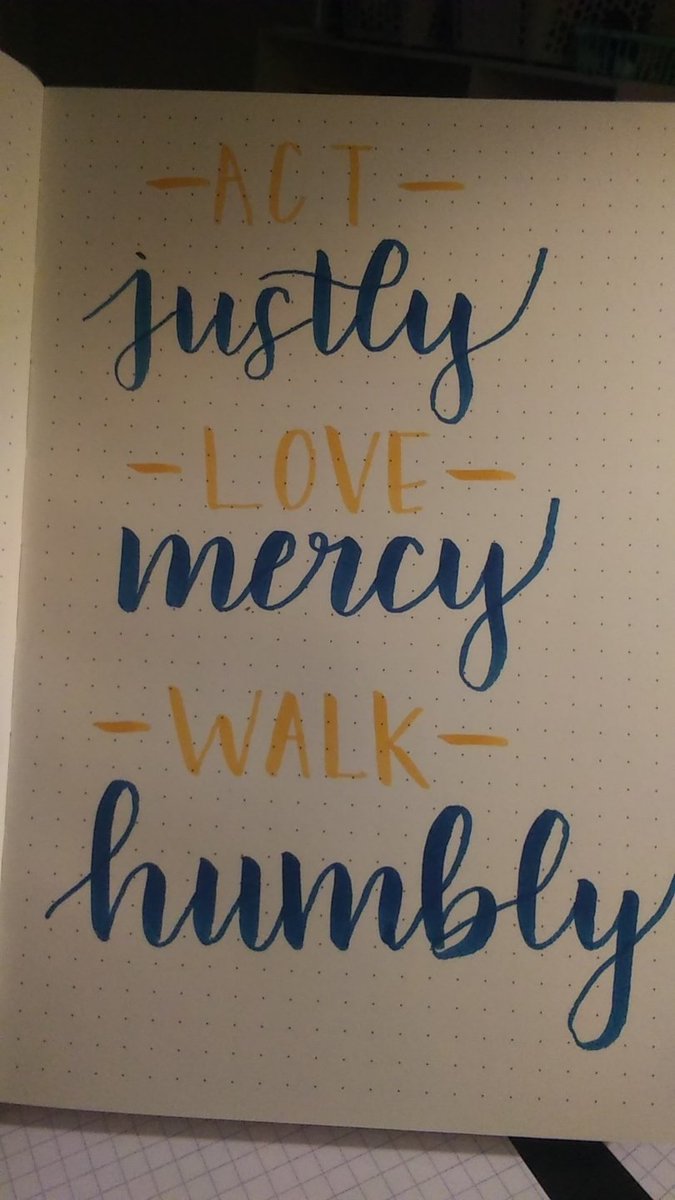 -ACT-
justly
-LOVE-
mercy
-WALK-
humbly